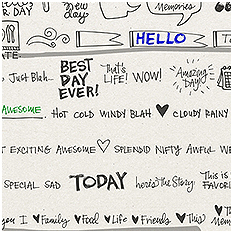 R DAY new day Memories
HELLO TODA
ATE
Just Blah... BEST DAY EVER! that's LIFE! WOW! Amazing DAY!
AWESOME HOT COLD WINDY BLAH ♥ CLOUDY RAINY
T EXCITING AWESOME ♡ SPLENDID NIFTY AWFUL WE
SPECIAL SAD TODAY here's the Story: This is FAVORI
♥ Family ♥ Food ♥ Life ♥ Friends ♥ This